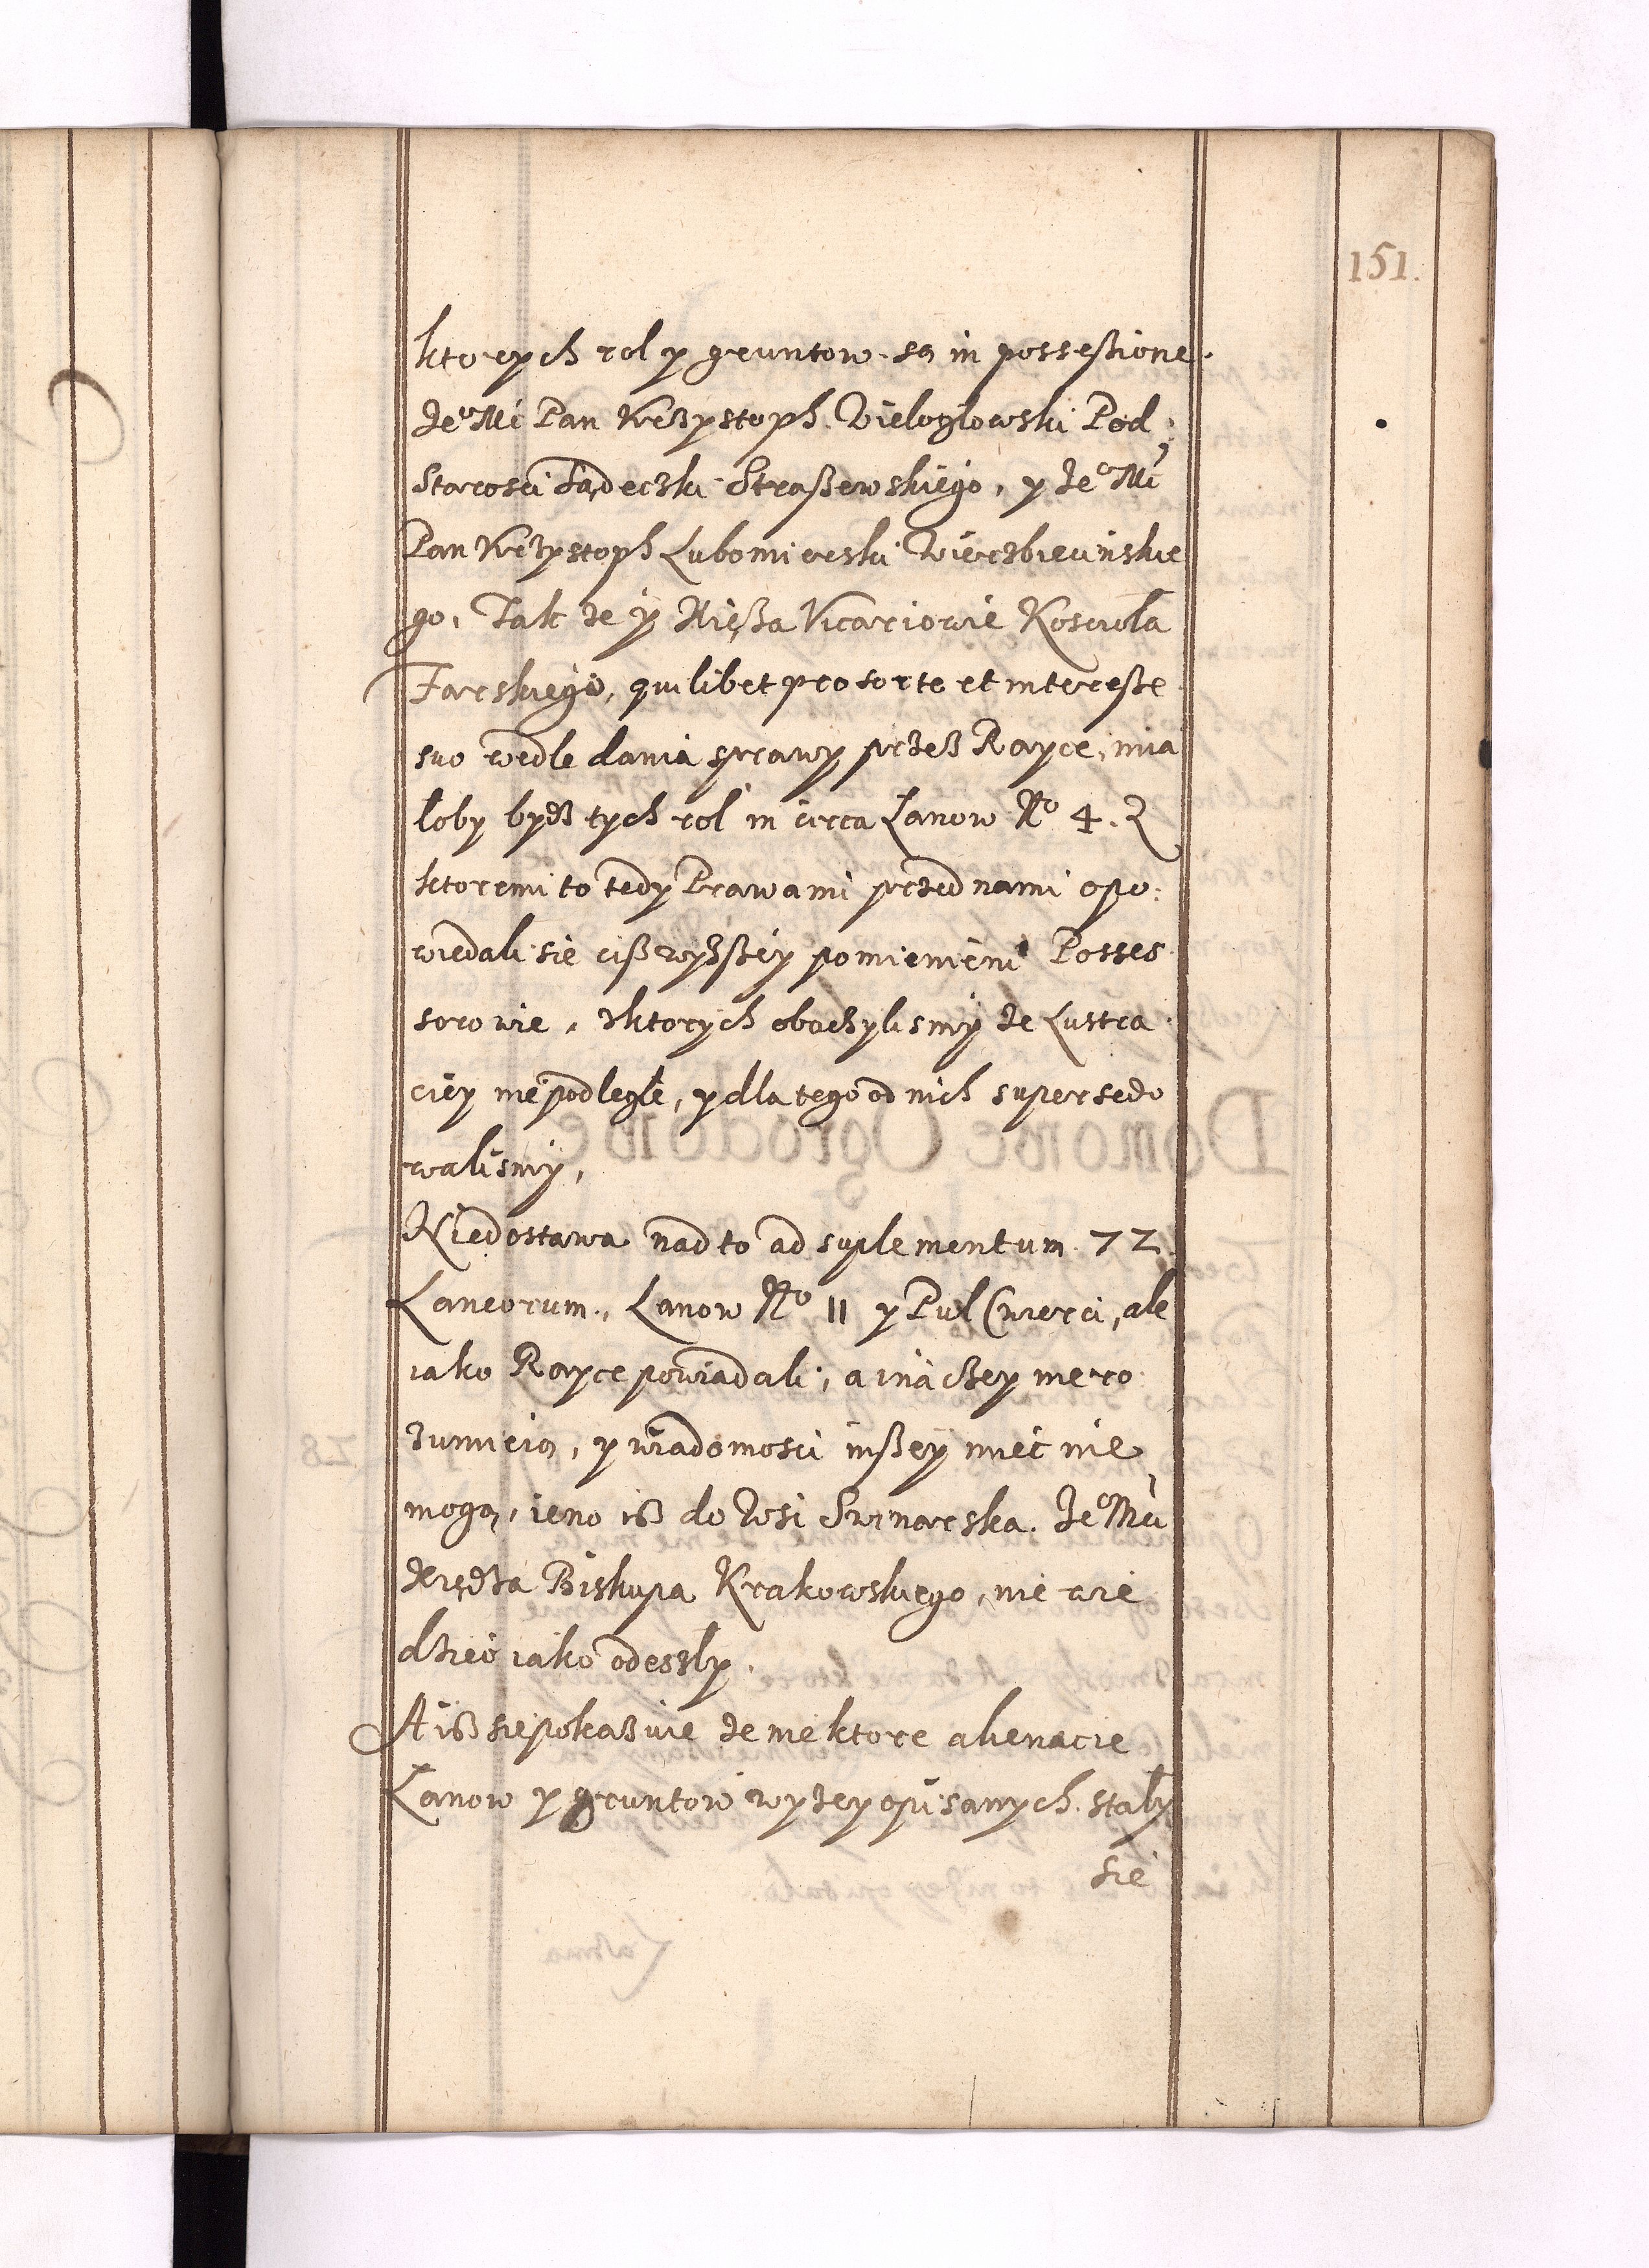 151.
ktorych rol y gruntow. są in possessione.
JeoMć Pan Krzysztoph Wielogłowski Pod:
Starosći Sądeczki Straszewskiego, y JeoMć
Pan Krzysztoph Lubomierski Wierzbieińskie
go, Tak że y Xięża Vicariowie Koscioła
Farskiego, quilibet pro sorte et interesse
suo wedle dania sprawy przesz Rayce, mia
łoby bydź tych rol in circa Łanow No 4. Z
ktoremi to tedy Prawami przed nami opo:
wiedali sie cisz wyższey pomienieni Posses
sorowie, z ktorych obaczylismy że Lustra
ciey niepodległe, y dla tego od nich supersedo
walismy,
Niedostawa nad to ad suplementum 72.
Laneorum., Łanow No 11 y Puł Cwierci, ale
iako Rayce powiadali, a inaczey niero
zumieią, y wiadomosci inszey mieć nie
mogą, ieno isz do Wsi Swinarska. JeoMći
Xiędza Biskupa Krakowskiego, nie wie
dzieć iako odeszły.
A isz sie pokaszuie że niektore alienacie
Łanow y gruntow wyżey opisanych. stały
sie